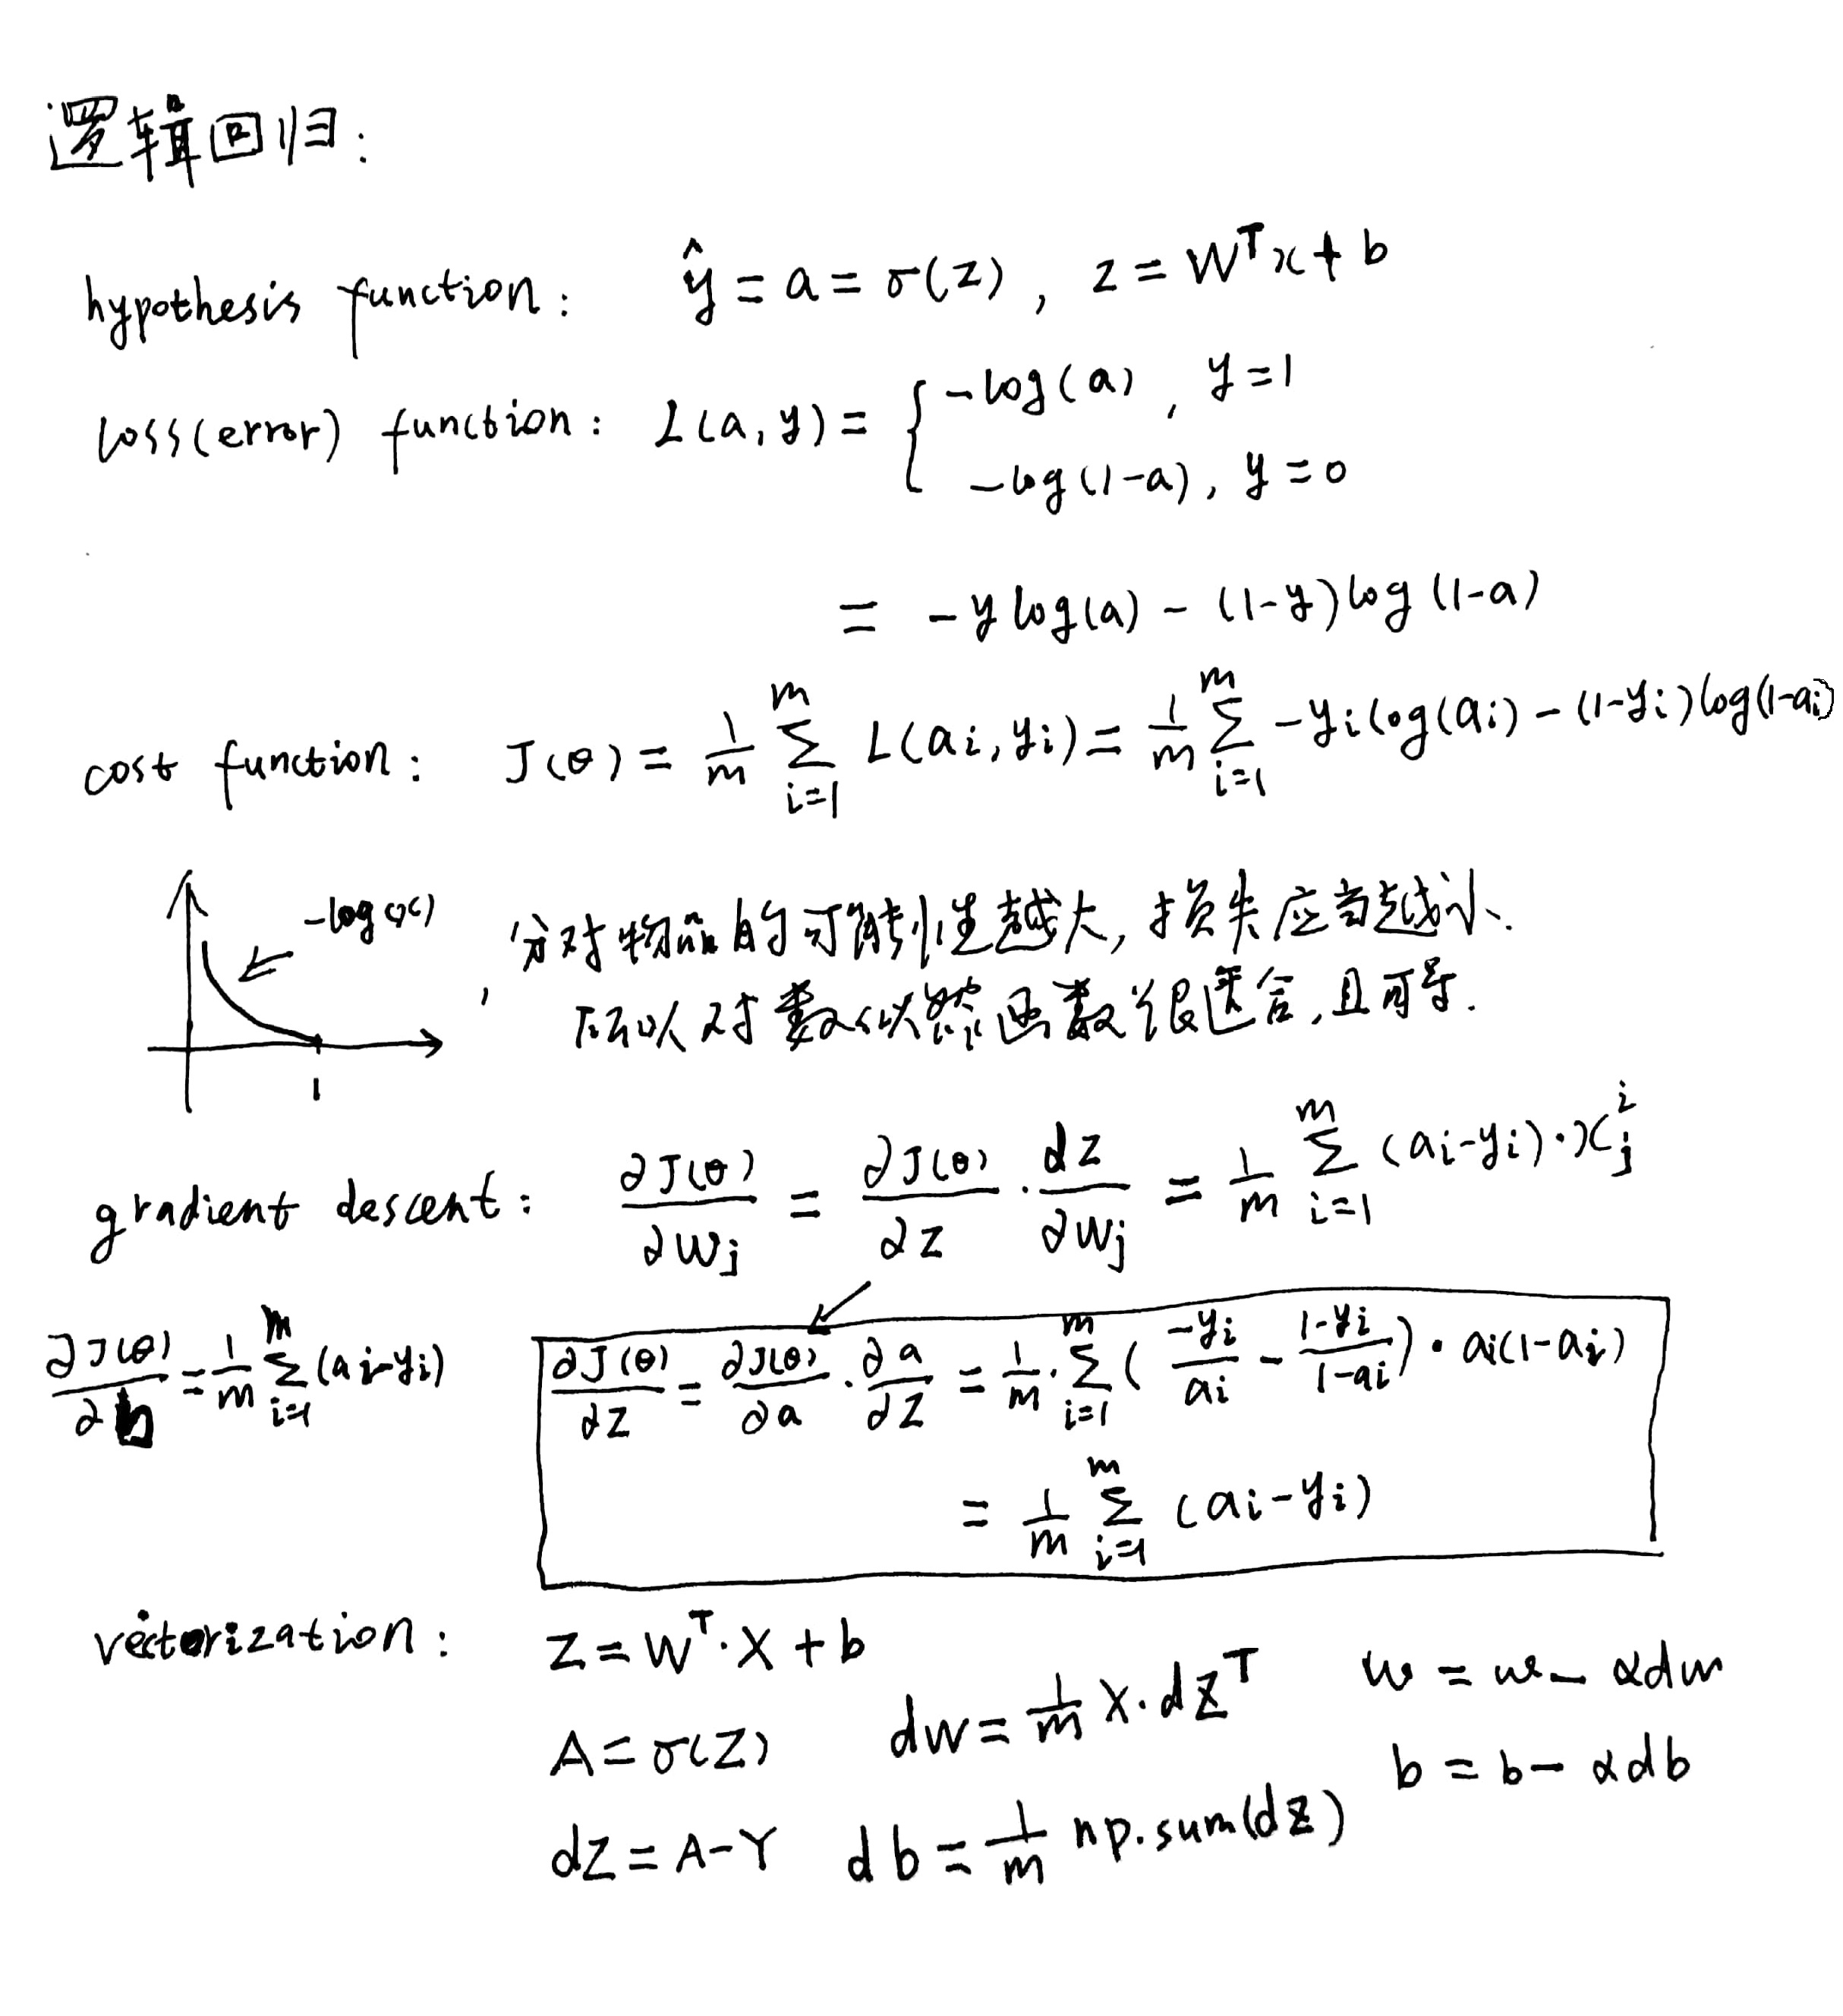 逻辑回归:
hypothesis function: ŷ = a = σ(z), z = Wᵀx + b
loss(error) function: L(a, y) = { -log(a), y=1
-log(1-a), y=0
= -y log(a) - (1-y) log(1-a)
cost function: J(θ) = 1/m Σ_{i=1}^{m} L(ai, yi) = 1/m Σ_{i=1}^{m} -yi log(ai) - (1-yi) log(1-ai)
-log(x)
1
分对物品的可能性越大, 损失应当越小.
, 所以对数似然函数很适合, 且可导.
gradient descent: ∂J(θ)/∂Wj = ∂J(θ)/∂z · dz/∂Wj = 1/m Σ_{i=1}^{m} (ai-yi)·x_j^i
∂J(θ)/∂b = 1/m Σ_{i=1}^{m} (ai-yi)
∂J(θ)/∂z = ∂J(θ)/∂a · ∂a/∂z = 1/m · Σ_{i=1}^{m} (-yi/ai - 1-yi/1-ai) · ai(1-ai)
= 1/m Σ_{i=1}^{m} (ai-yi)
vectorization: Z = Wᵀ·X + b
A = σ(Z) dw = 1/m X·dZᵀ w = w - αdw
dZ = A-Y db = 1/m np.sum(dz) b = b - αdb